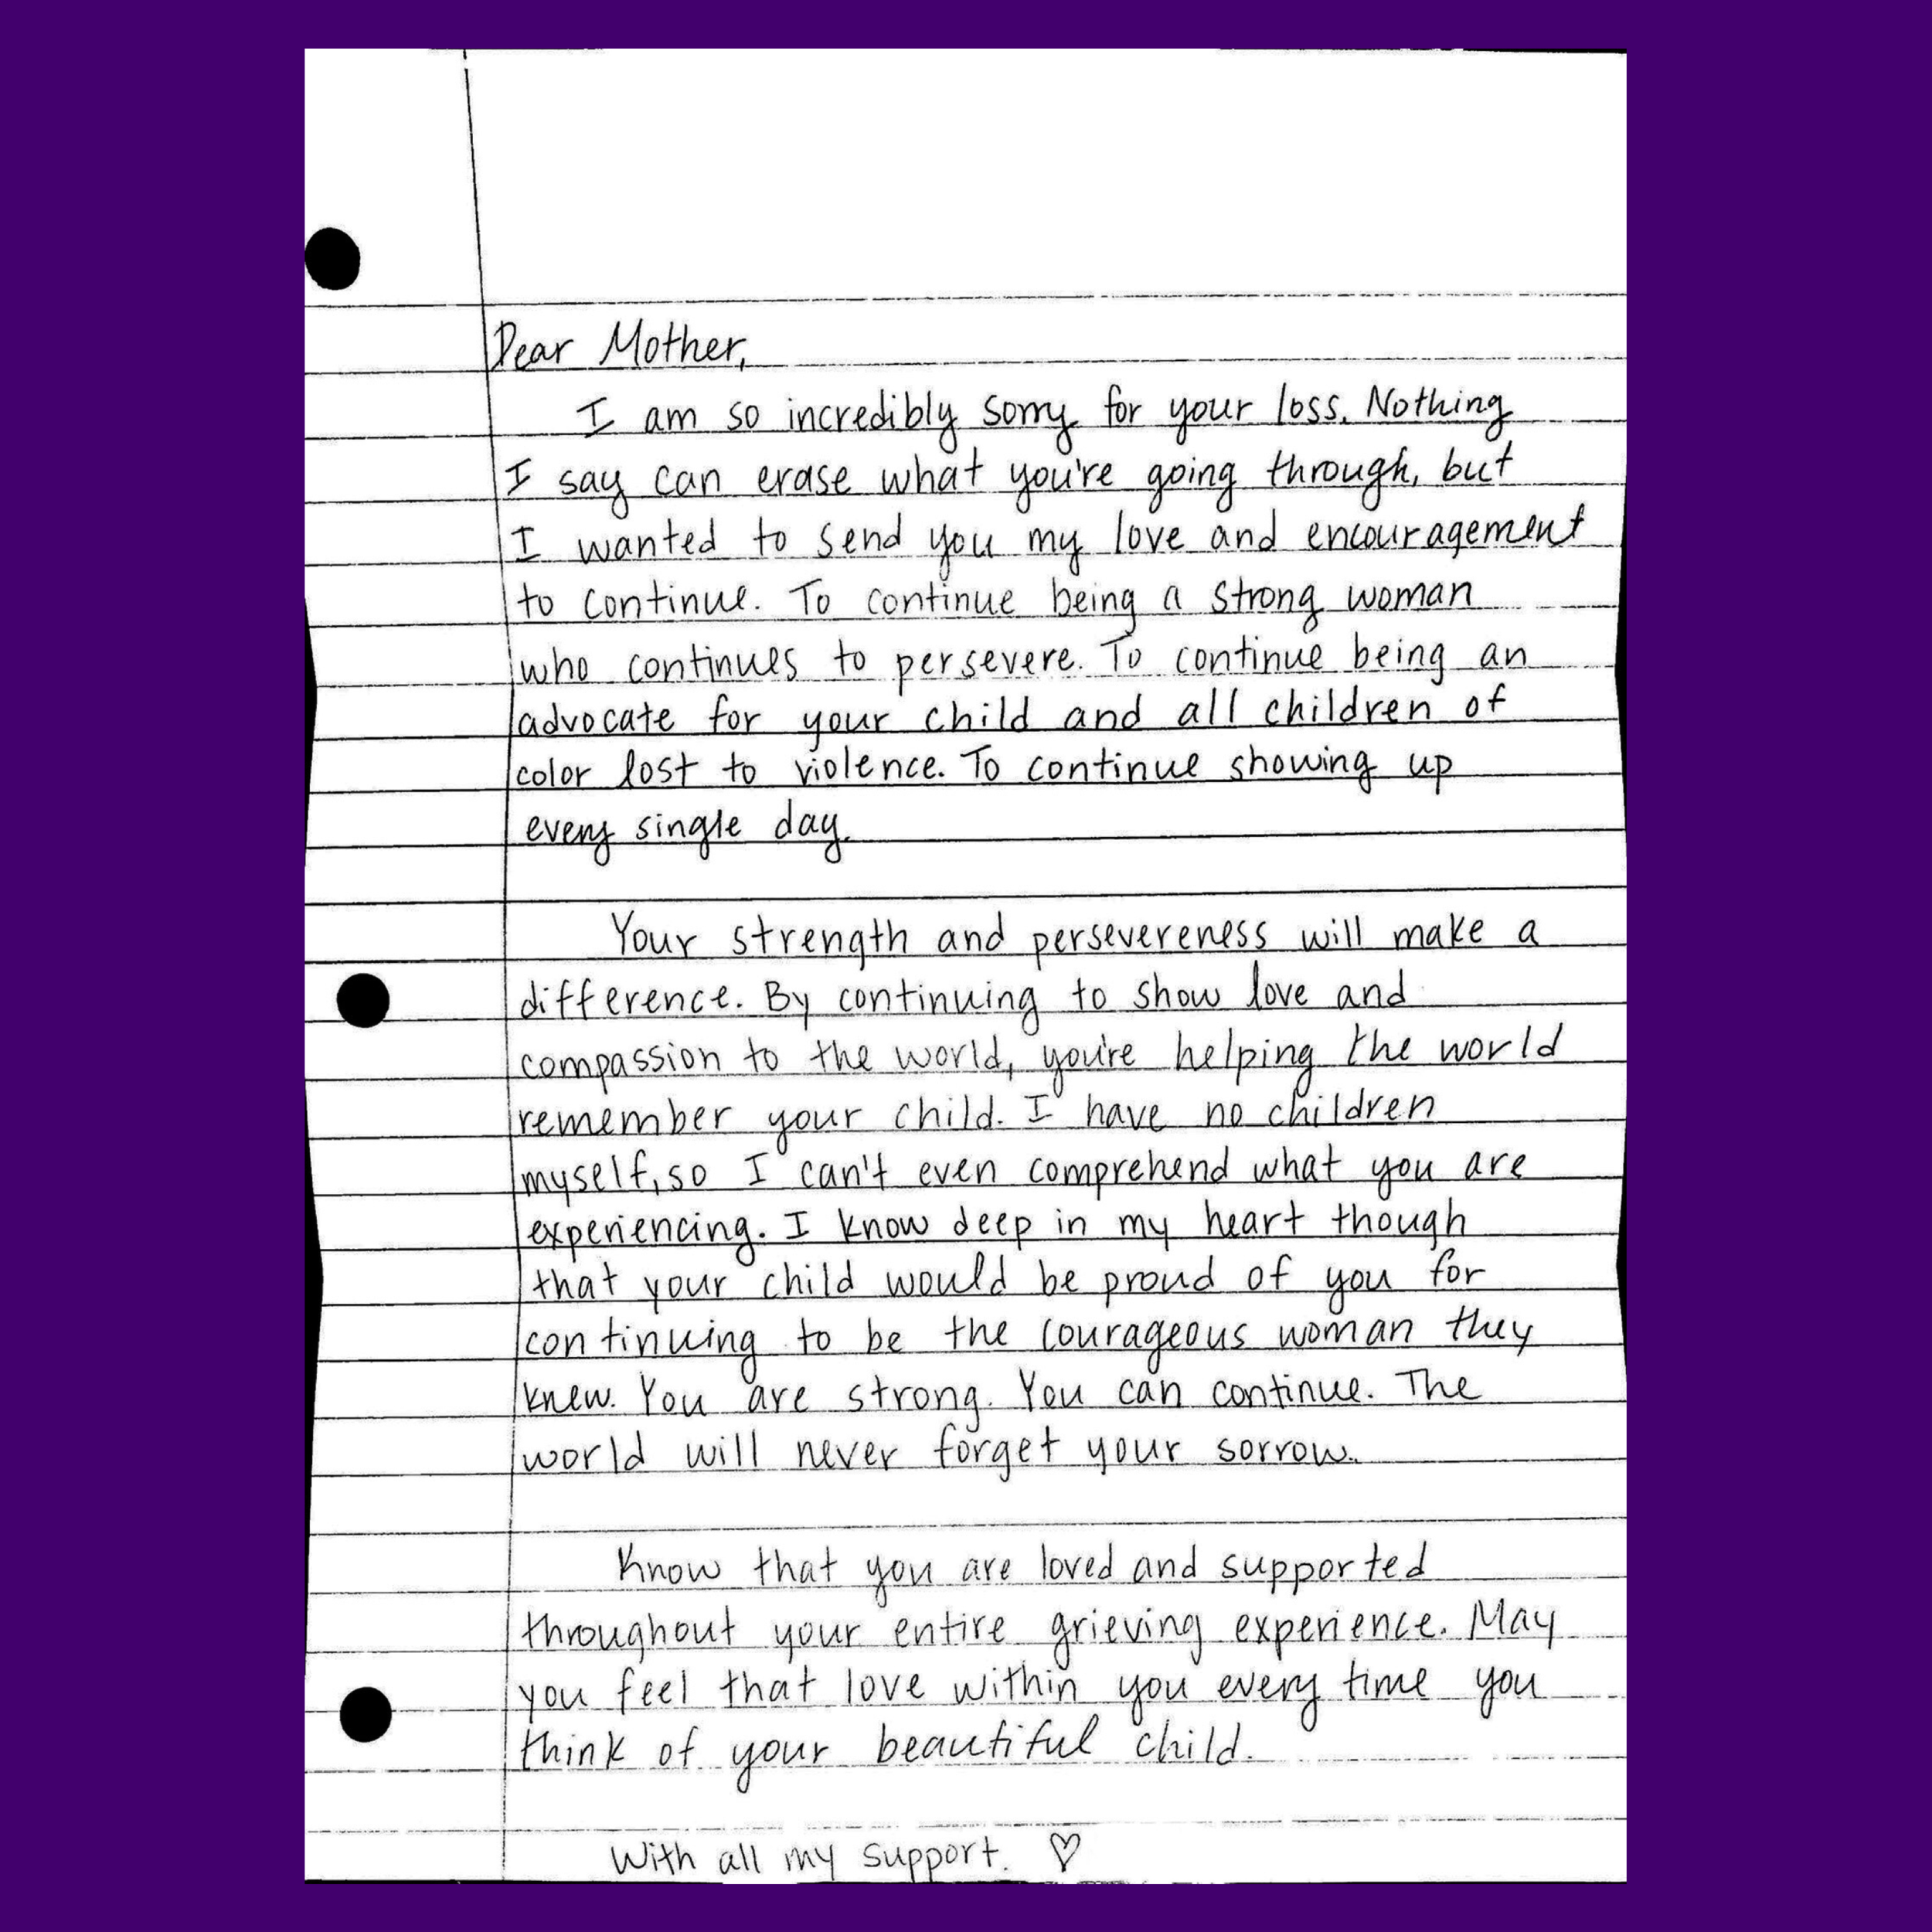 Dear Mother,
I am so incredibly sorry for your loss. Nothing
I say can erase what you're going through, but
I wanted to send you my love and encouragement
to continue. To continue being a strong woman
who continues to persevere. To continue being an
advocate for your child and all children of
color lost to violence. To continue showing up
every single day.
Your strength and persevereness will make a
difference. By continuing to show love and
compassion to the world, you're helping the world
remember your child. I have no children
myself, so I can't even comprehend what you are
experiencing. I know deep in my heart though
that your child would be proud of you for
continuing to be the courageous woman they
knew. You are strong. You can continue. The
world will never forget your sorrow.
Know that you are loved and supported
throughout your entire grieving experience. May
you feel that love within you every time you
think of your beautiful child.
With all my support. ♡